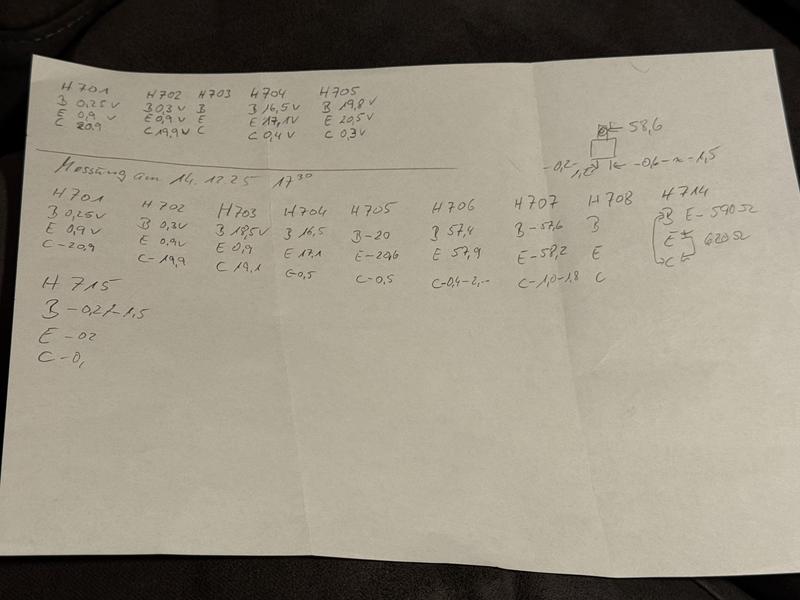 H701 H702 H703 H704 H705
B 0,25 V B 0,3 V B B 16,5 V B 19,8 V
E 0,9 V E 0,9 V E E 17,1 V E 20,5 V
C 20,9 C 19,9 V C C 0,4 V C 0,3 V
58,6
-0,2- -0,6-~-1,5
Messung am 14.12.25 17³⁰
H701 H702 H703 H704 H705 H706 H707 H708 H714
B 0,25V B 0,3V B 18,5V B 16,5 B-20 B 57,4 B-57,6 B B E-590Ω
E 0,9V E 0,9V E 0,9 E 17,1 E-20,6 E 57,9 E-58,2 E E 620Ω
C-20,9 C-19,9 C 19,1 C-0,5 C-0,5 C-0,4-2,-- C-1,0-1,8 C C
H715
B-0,27-1,5
E-02
C-0,